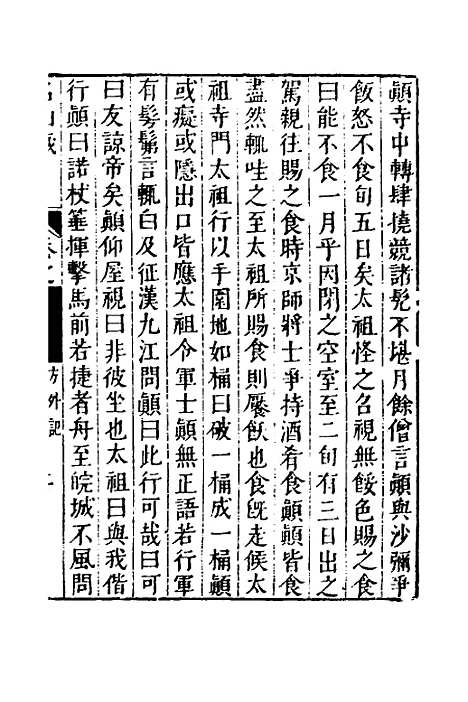 顛寺中轉肆撓競諸髡不堪月餘僧言顛與沙彌爭
飯怒不食旬五日矣太祖怪之召視無餒色賜之食
曰能不食一月乎因閉之空室至二旬有三日出之
駕親往賜之食時京師將士爭持酒肴食顛顛皆食
盡然輒哇之至太祖所賜食則饜飫也食旣走候太
祖寺門太祖行以手圍地如桶曰破一桶成一桶顛
或癡或隱出口皆應太祖令軍士顛無正語若行軍
有髣髴言輒白及征漢九江問顛曰此行可哉曰可
曰友諒帝矣顛仰屋視曰非彼坐也太祖曰與我偕
行顛曰諾杖箠揮擊馬前若捷者舟至皖城不風問
名山藏 方外記